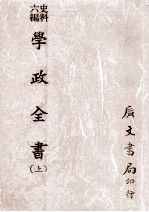 史料六編
學政全書
(上)
廣文書局印行